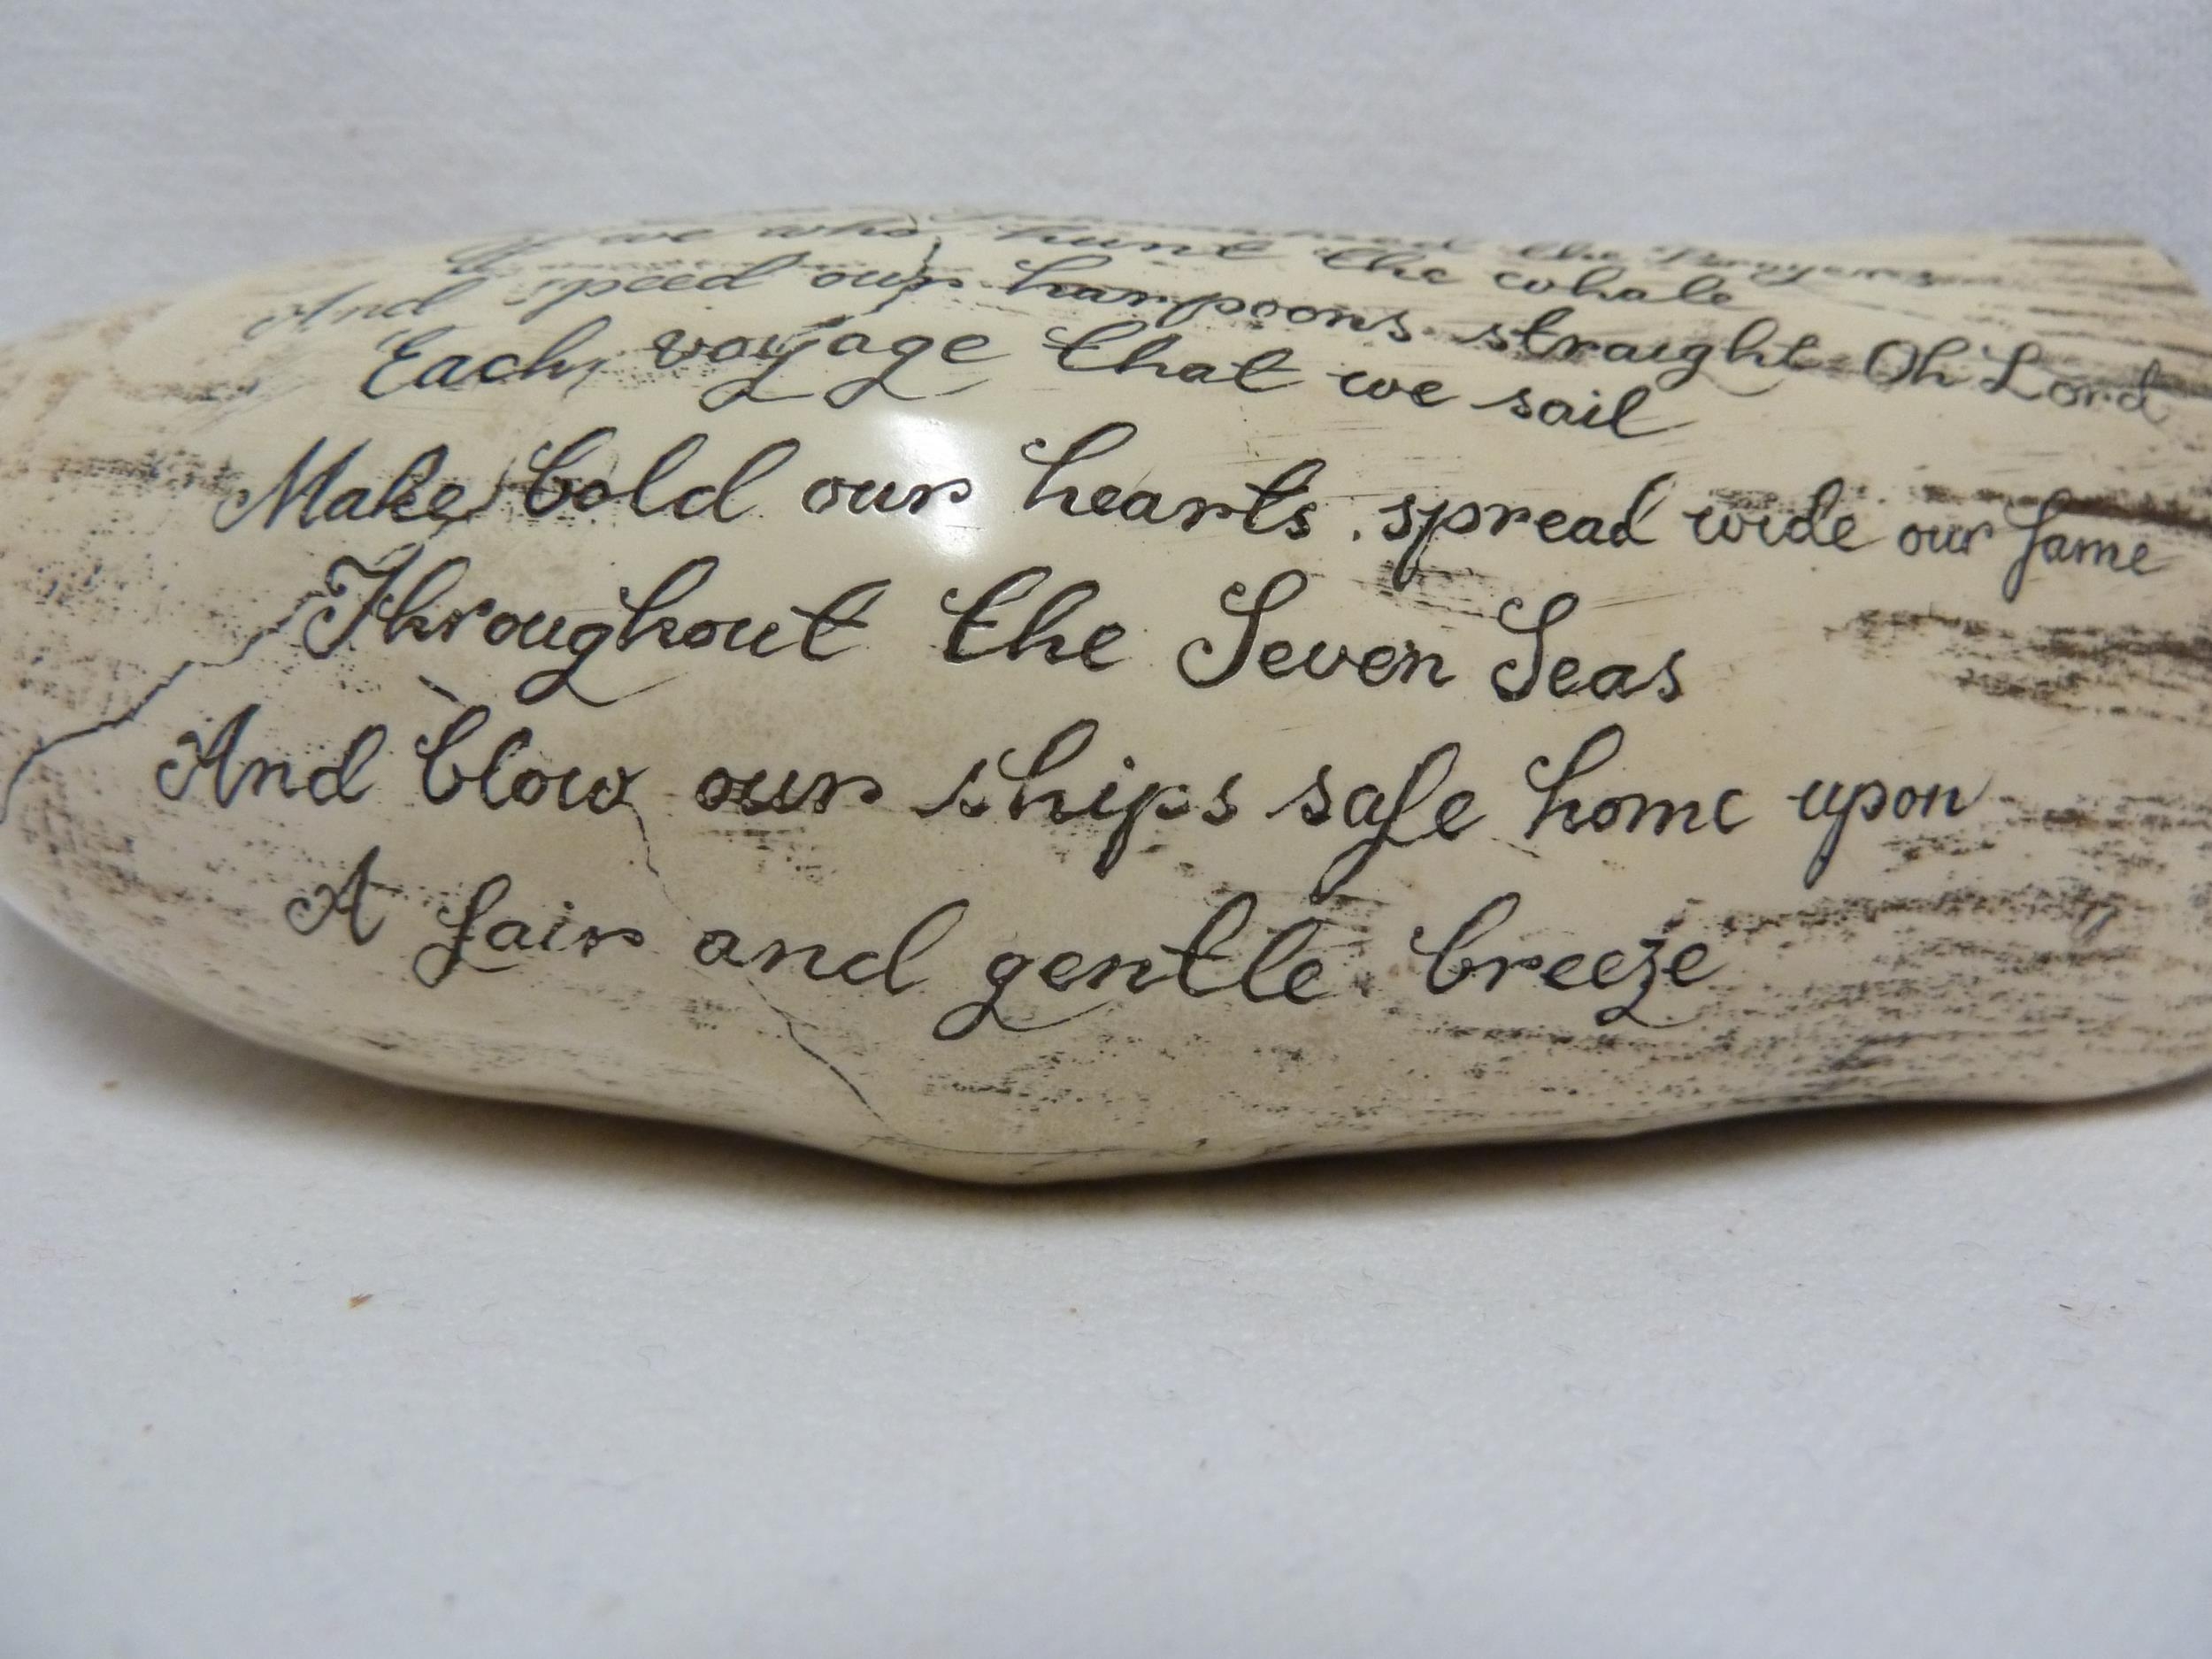 the Prayers
Of we who hunt the whale
And speed our harpoons straight Oh Lord
Each voyage that we sail
Make bold our hearts, spread wide our fame
Throughout the Seven Seas
And blow our ships safe home upon
A fair and gentle breeze